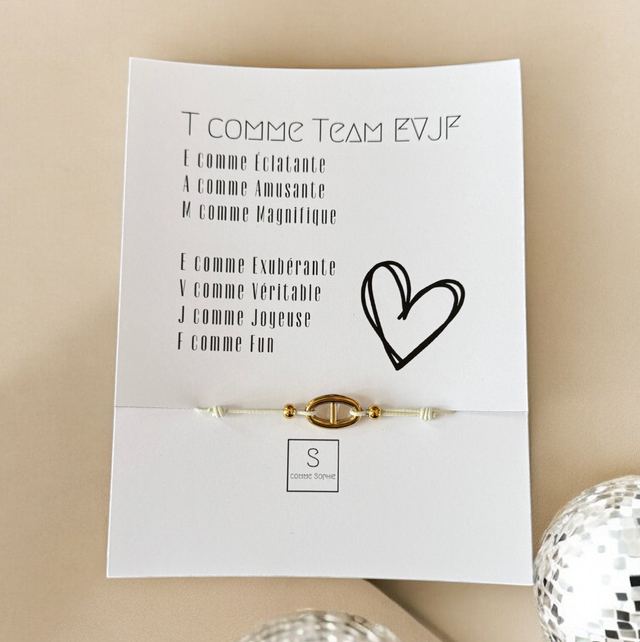 T comme Team EVJF
E comme Éclatante
A comme Amusante
M comme Magnifique
E comme Exubérante
V comme Véritable
J comme Joyeuse
F comme Fun
S
comme Sophie